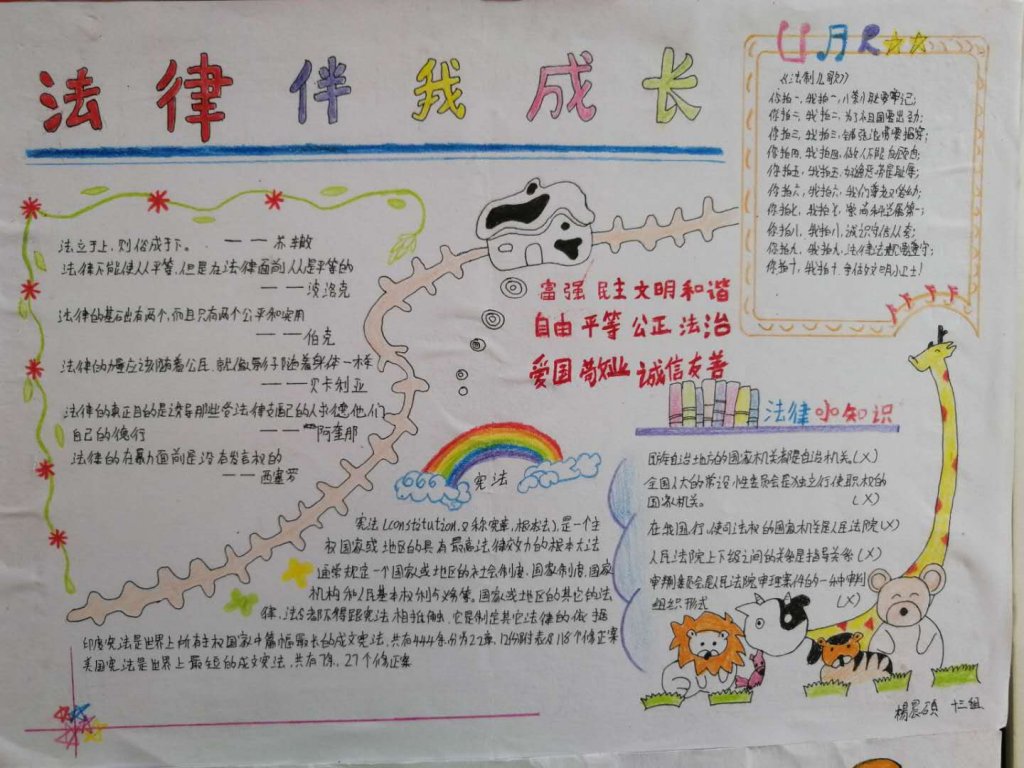 法律伴我成长
法立于上,则俗成于下。——苏辙
法律不能使人人平等,但是在法律面前人人是平等的
——波洛克
法律的基础有两个,而且只有两个公平和实用
——伯克
法律的力量应该跟随着公民,就像影子跟随着身体一样
——贝卡利亚
法律的真正目的是诱导那些受法律支配的人求德他们
自己的德行
——阿奎那
法律的在暴力面前是没有发言权的
——西塞罗
富强 民主 文明 和谐
自由 平等 公正 法治
爱国 敬业 诚信 友善
《法制儿歌》
你拍一,我拍一,八荣八耻要牢记;
你拍二,我拍二,为了祖国要出力;
你拍三,我拍三,
你拍四,我拍四,做人不能
你拍五,我拍五,
你拍六,我拍六,我们
你拍七,我拍七,崇尚科学属第一;
你拍八,我拍八,诚识守信人人
你拍九,我拍九,法律法规要遵守;
你拍十,我拍十,争做文明小卫士!
法律小知识
民族自治地方的国家机关都是自治机关。(X)
全国人大的常设性委员会是独立行使职权的
国家机关。(X)
在我国行使司法权的国家机关是人民法院(X)
人民法院上下级之间的关系是指导关系(X)
审判委员会是人民法院审理案件的一种审判
组织形式(X)
宪法
宪法(constitution,又称宪章,根本法),是一个主
权国家或地区的具有最高法律效力的根本大法
通常规定一个国家或地区的社会制度、国家制度、国家
机构和人民基本权利与义务等。国家或地区的其它的法
律、法令都不得跟宪法相抵触,它是制定其它法律的依据
印度宪法是世界上所有主权国家中篇幅最长的成文宪法,共有444条,分为22章,12份附表及118个修正案
美国宪法是世界上最短的成文宪法,共有7条,27个修正案
杨晨硕 十三组